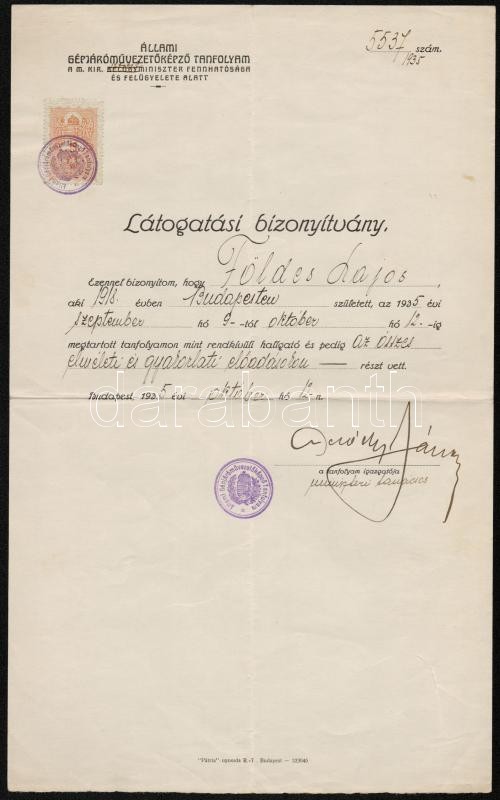 ÁLLAMI
GÉPJÁRÓMŰVEZETŐKÉPZŐ TANFOLYAM
A M. KIR. MINISZTER FENNHATÓSÁGA
ÉS FELÜGYELETE ALATT
5537 szám.
1935
Látogatási bizonyítvány.
Ezennel bizonyítom, hogy Földes Lajos
aki 1918. évben Budapesten született, az 1935 évi
szeptember hó 9-től október hó 12-ig
megtartott tanfolyamon mint rendkívüli hallgató és pedig az összes
elméleti és gyakorlati előadásokon részt vett.
Budapest 1935 évi október hó 12-n.
a tanfolyam igazgatója
miniszteri tanácsos
ÁLLAMI GÉPJÁRÓMŰVEZETŐKÉPZŐ TANFOLYAM
darabanth
"Pátria" nyomda R.-T. Budapest